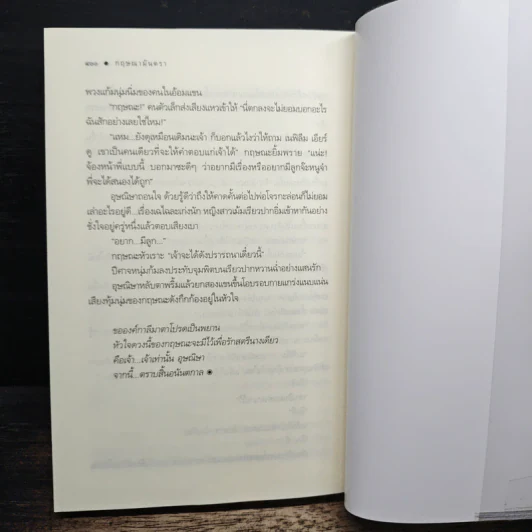 ๔๑๐ ● กฤษณามันตรา
พวงแก้มนุ่มนิ่มของคนในอ้อมแขน
"กฤษณะ!" คนตัวเล็กส่งเสียงแหวเข้าให้ "นี่ตกลงจะไม่ยอมบอกอะไร
ฉันสักอย่างเลยใช่ไหม!"
"แหม...ยังดุเหมือนเดิมนะเจ้า ก็บอกแล้วไงว่าให้ถาม เนฟิลีม เอียร์
ดู เขาเป็นคนเดียวที่จะให้คำตอบแก่เจ้าได้" กฤษณะยิ้มพราย "แน่ะ!
จ้องหน้าพี่แบบนี้ บอกมาซะดีๆ ว่าอยากมีเรื่องหรืออยากมีลูกจ๊ะหนูจ๋า
พี่จะได้สนองได้ถูก"
อุษณิษาถอนใจ ด้วยรู้ดีว่าถึงให้คาดคั้นต่อไปพ่อโจรกะล่อนก็ไม่ยอม
เล่าอะไรอยู่ดี...เรื่องเฉไฉละเก่งนัก หญิงสาวเม้มเรียวปากอิ่มเข้าหากันอย่าง
ชั่งใจอยู่ครู่หนึ่งแล้วตอบเสียงเบา
"อยาก...มีลูก..."
กฤษณะหัวเราะ "เจ้าจะได้ดังปรารถนาเดี๋ยวนี้"
ปีศาจหนุ่มก้มลงประทับจุมพิตบนเรียวปากหวานฉ่ำอย่างแสนรัก
อุษณิษาหลับตาพริ้มแล้วยกสองแขนขึ้นโอบรอบกายแกร่งแนบแน่น
เสียงทุ้มนุ่มของกฤษณะดังกึกก้องอยู่ในหัวใจ
ขอองค์กาลีมาตาโปรดเป็นพยาน
หัวใจดวงนี้ของกฤษณะจะมีไว้เพื่อรักสตรีนางเดียว
คือเจ้า...เจ้าเท่านั้น อุษณิษา
จากนี้...ตราบสิ้นอนันตกาล ◉